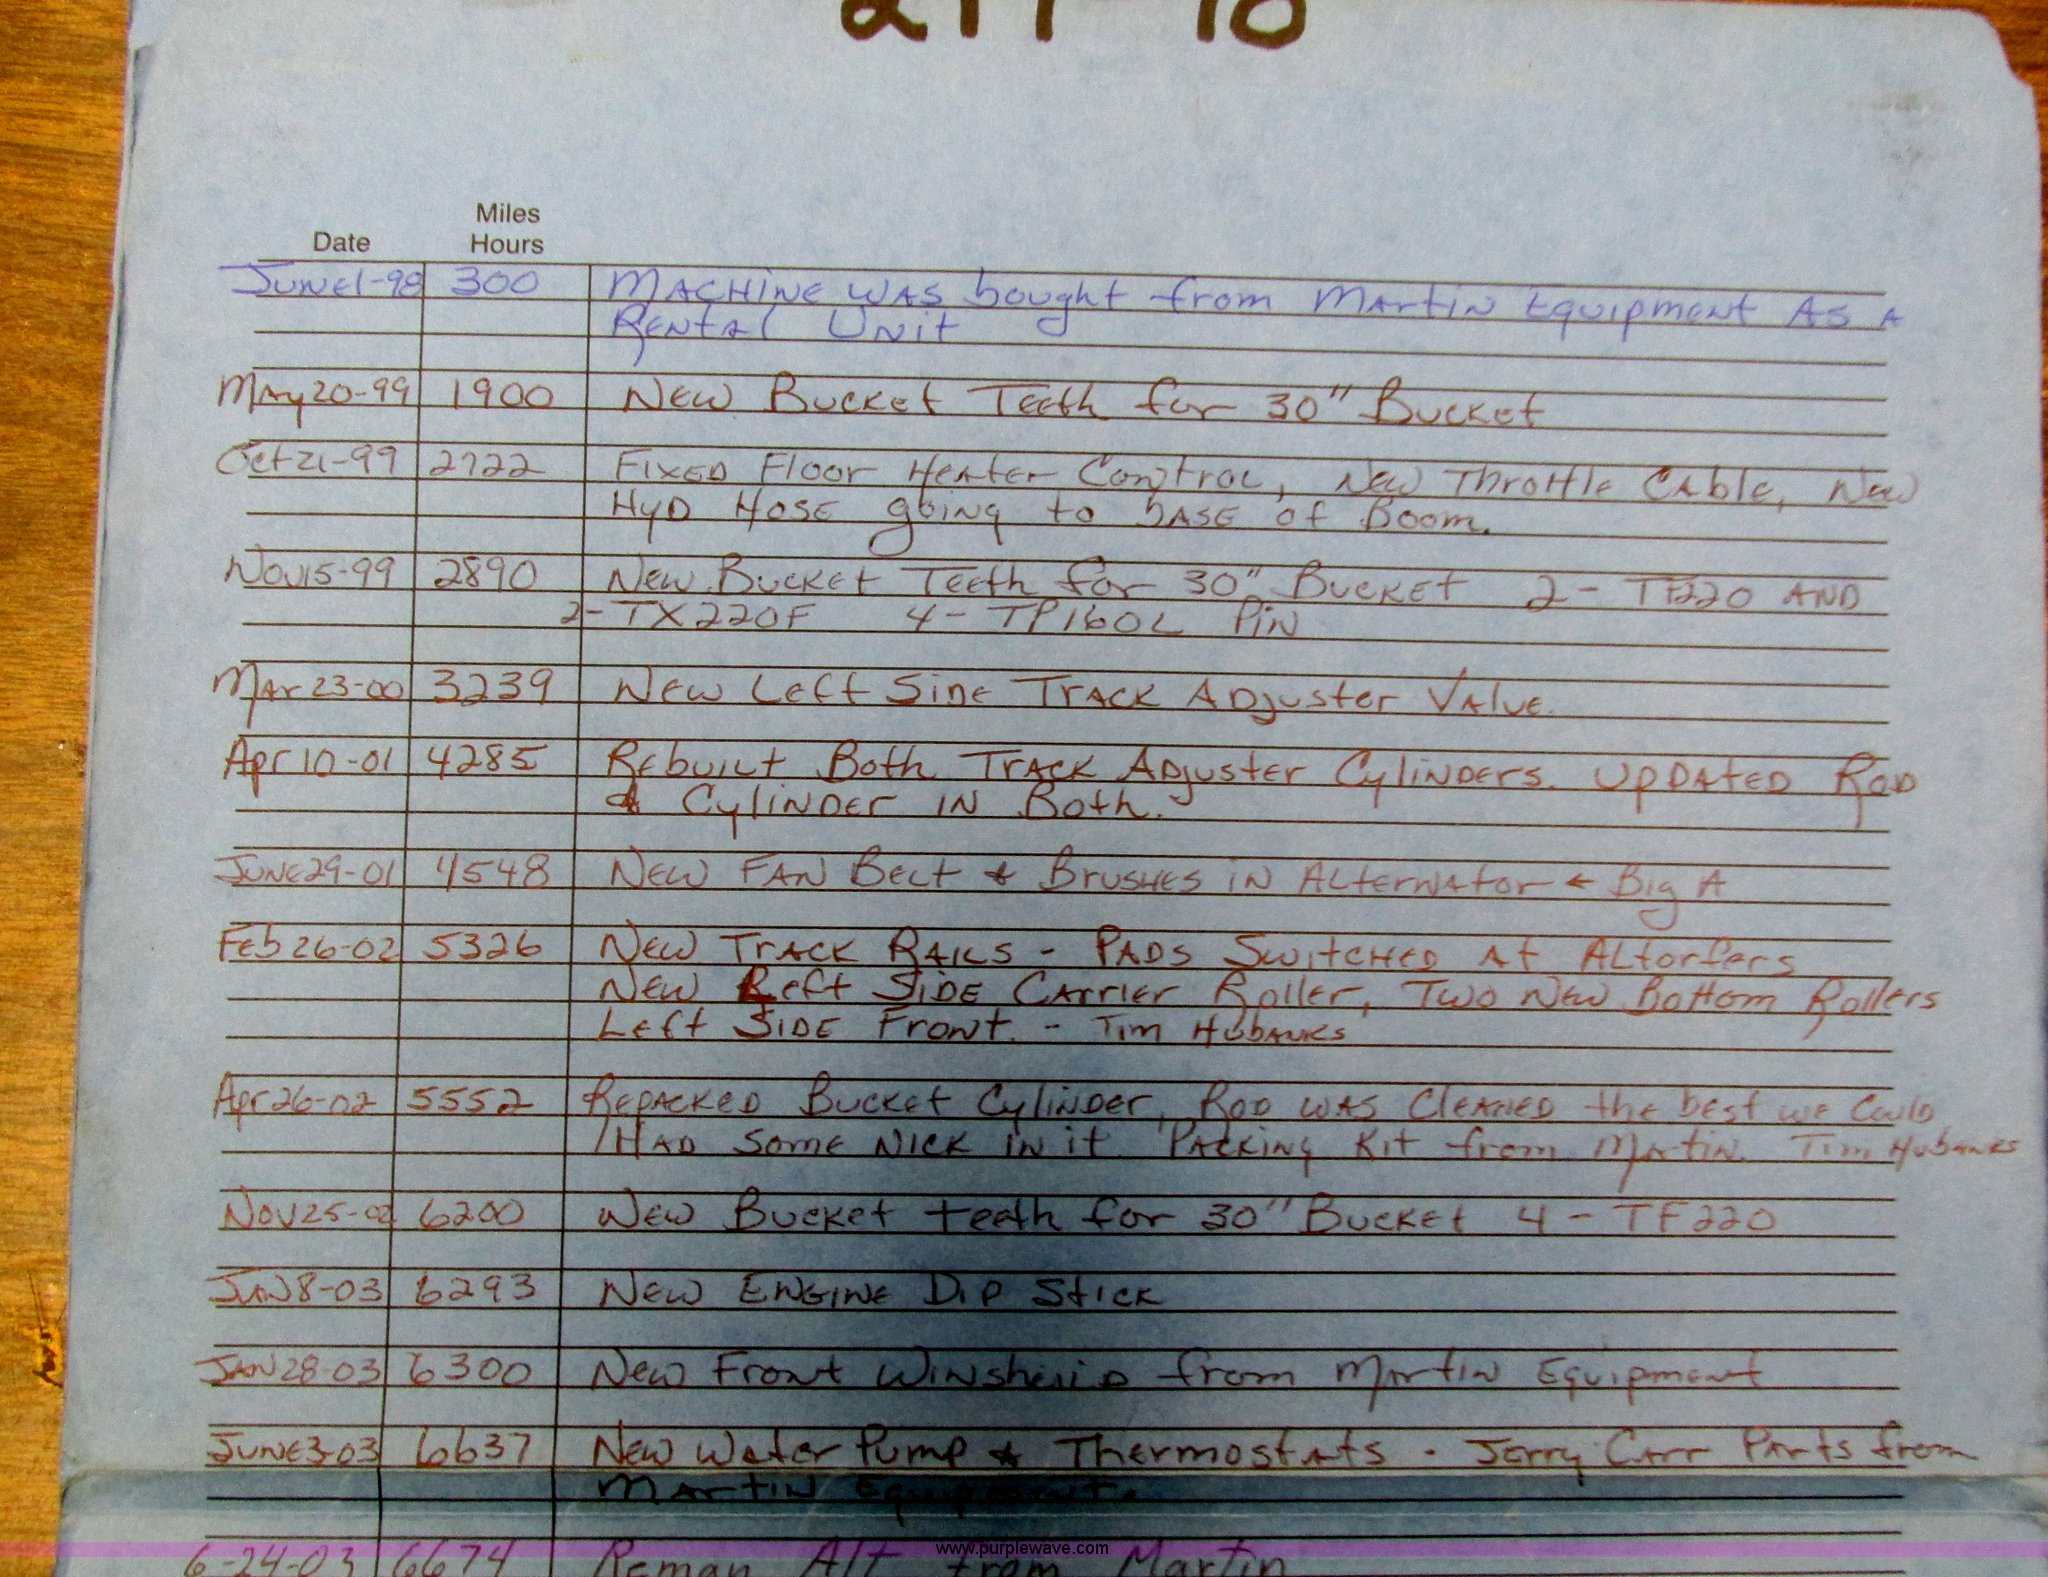 Miles
Date Hours
June 1-98 300 Machine was bought from Martin Equipment As A
Rental Unit
May 20-99 1900 New Bucket Teeth for 30" Bucket
Oct 21-99 2722 Fixed Floor Heater Control, New Throttle Cable, New
Hyd Hose going to base of Boom.
Nov 15-99 2890 New Bucket Teeth for 30" Bucket 2- TF220 AND
2- TX220F 4- TP160L Pin
Mar 23-00 3239 New Left Side Track Adjuster Valve.
Apr 10-01 4285 Rebuilt Both Track Adjuster Cylinders. Updated Rod
& Cylinder in Both.
June 29-01 4548 New Fan Belt & Brushes in Alternator ← Big A
Feb 26-02 5326 New Track Rails - Pads Switched At Altorfers
New Left Side Carrier Roller, Two New Bottom Rollers
Left Side Front. - Tim Hubanks
Apr 26-02 5552 Repacked Bucket Cylinder, Rod was Cleaned the best we Could
/Had some Nick in it Packing Kit from Martin. Tim Hubanks
Nov 25-02 6200 New Bucket teeth for 30" Bucket 4 - TF220
Jan 8-03 6293 New Engine Dip Stick
Jan 28-03 6300 New Front Winsheild from Martin Equipment
June 3-03 6637 New Water Pump & Thermostats - Jerry Carr Parts from
Martin Equipment.
6-24-03 6674 Reman Alt from Martin
www.purplewave.com